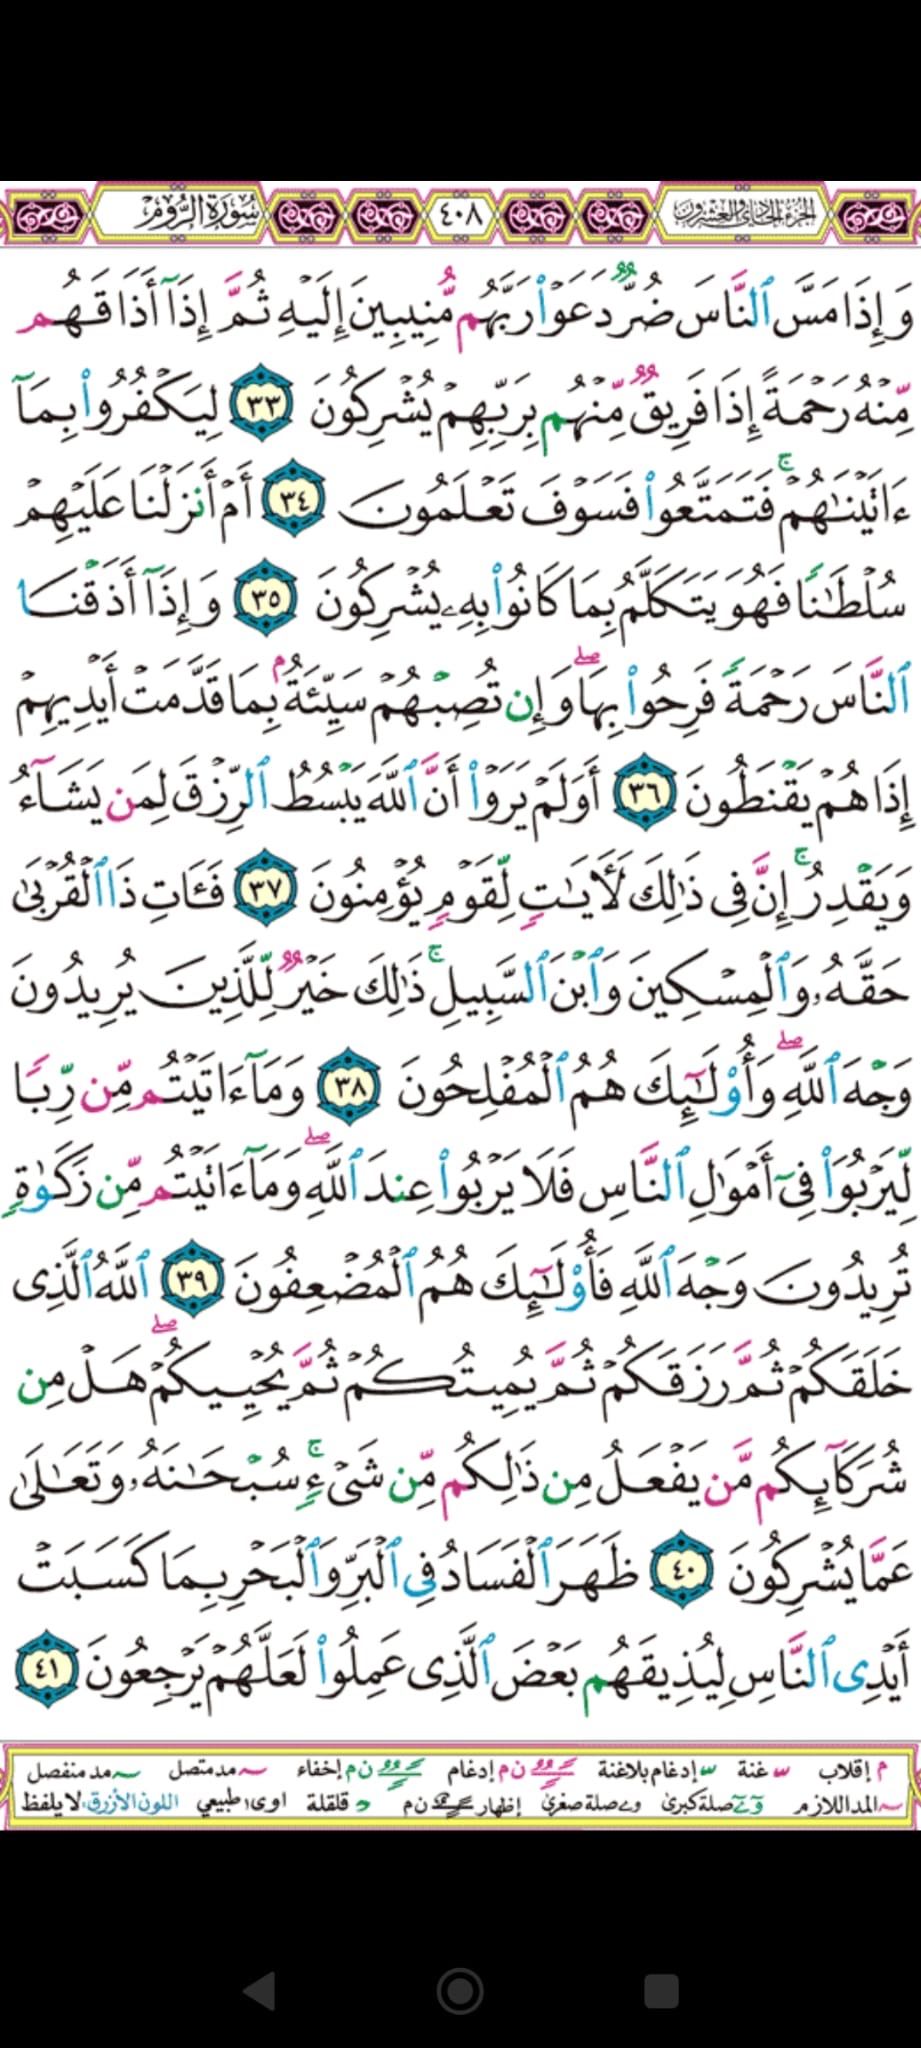 سُورَةُ الرُّومِ ٤٠٨ الجزء الحادي والعشرون
وَإِذَا مَسَّ ٱلنَّاسَ ضُرٌّ دَعَوْا۟ رَبَّهُم مُّنِيبِينَ إِلَيْهِ ثُمَّ إِذَآ أَذَاقَهُم
مِّنْهُ رَحْمَةً إِذَا فَرِيقٌ مِّنْهُم بِرَبِّهِمْ يُشْرِكُونَ ٣٣ لِيَكْفُرُوا۟ بِمَآ
ءَاتَيْنَٰهُمْ ۚ فَتَمَتَّعُوا۟ فَسَوْفَ تَعْلَمُونَ ٣٤ أَمْ أَنزَلْنَا عَلَيْهِمْ
سُلْطَٰنًا فَهُوَ يَتَكَلَّمُ بِمَا كَانُوا۟ بِهِۦ يُشْرِكُونَ ٣٥ وَإِذَآ أَذَقْنَا
ٱلنَّاسَ رَحْمَةً فَرِحُوا۟ بِهَا ۖ وَإِن تُصِبْهُمْ سَيِّئَةٌۢ بِمَا قَدَّمَتْ أَيْدِيهِمْ
إِذَا هُمْ يَقْنَطُونَ ٣٦ أَوَلَمْ يَرَوْا۟ أَنَّ ٱللَّهَ يَبْسُطُ ٱلرِّزْقَ لِمَن يَشَآءُ
وَيَقْدِرُ ۚ إِنَّ فِى ذَٰلِكَ لَـَٔايَٰتٍ لِّقَوْمٍ يُؤْمِنُونَ ٣٧ فَـَٔاتِ ذَا ٱلْقُرْبَىٰ
حَقَّهُۥ وَٱلْمِسْكِينَ وَٱبْنَ ٱلسَّبِيلِ ۚ ذَٰلِكَ خَيْرٌ لِّلَّذِينَ يُرِيدُونَ
وَجْهَ ٱللَّهِ ۖ وَأُو۟لَٰٓئِكَ هُمُ ٱلْمُفْلِحُونَ ٣٨ وَمَآ ءَاتَيْتُم مِّن رِّبًا
لِّيَرْبُوَا۟ فِىٓ أَمْوَٰلِ ٱلنَّاسِ فَلَا يَرْبُوا۟ عِندَ ٱللَّهِ ۖ وَمَآ ءَاتَيْتُم مِّن زَكَوٰةٍ
تُرِيدُونَ وَجْهَ ٱللَّهِ فَأُو۟لَٰٓئِكَ هُمُ ٱلْمُضْعِفُونَ ٣٩ ٱللَّهُ ٱلَّذِى
خَلَقَكُمْ ثُمَّ رَزَقَكُمْ ثُمَّ يُمِيتُكُمْ ثُمَّ يُحْيِيكُمْ ۖ هَلْ مِن
شُرَكَآئِكُم مَّن يَفْعَلُ مِن ذَٰلِكُم مِّن شَىْءٍ ۚ سُبْحَٰنَهُۥ وَتَعَٰلَىٰ
عَمَّا يُشْرِكُونَ ٤٠ ظَهَرَ ٱلْفَسَادُ فِى ٱلْبَرِّ وَٱلْبَحْرِ بِمَا كَسَبَتْ
أَيْدِى ٱلنَّاسِ لِيُذِيقَهُم بَعْضَ ٱلَّذِى عَمِلُوا۟ لَعَلَّهُمْ يَرْجِعُونَ ٤١
م إقلاب غنة إدغام بلاغنة ن م إدغام ن م إخفاء مد متصل مد منفصل
المد اللازم صلة كبرى صلة صغرى إظهار ن م قلقلة اوى طبيعي اللون الأزرق: لا يلفظ